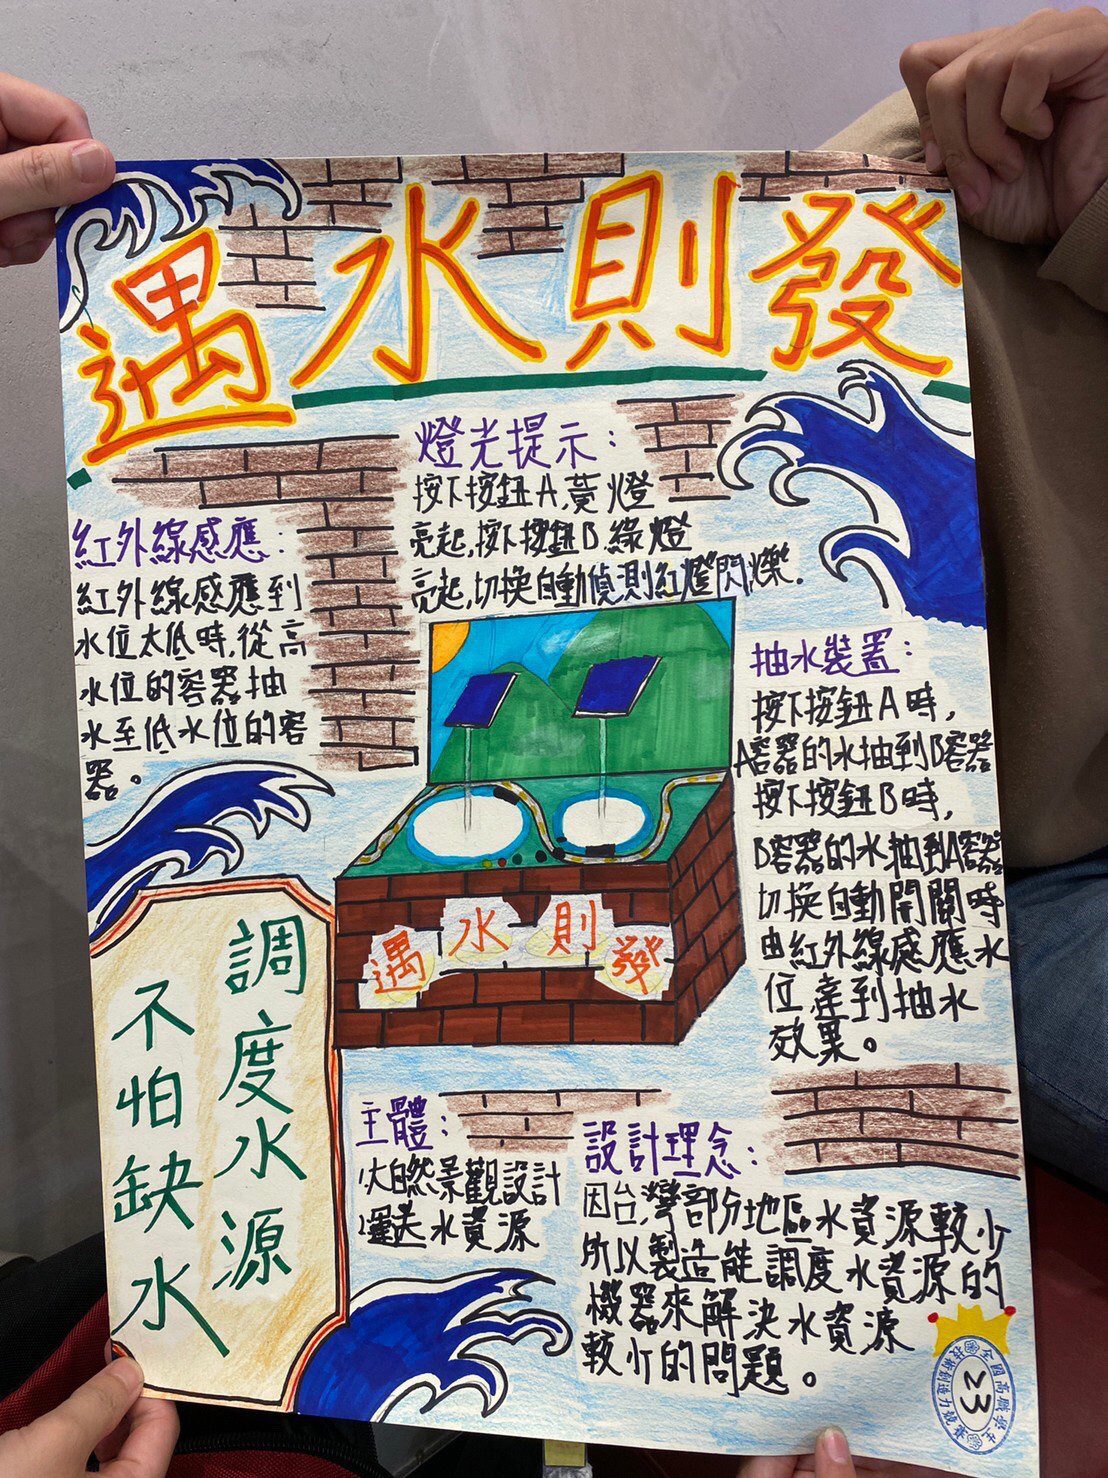 遇水則發
燈光提示：
按下按鈕A,黃燈
亮起,按下按鈕B,綠燈
亮起,切換自動偵測紅燈閃爍.
紅外線感應：
紅外線感應到
水位太低時,從高
水位的容器抽
水至低水位的容
器。
抽水裝置：
按下按鈕A時,
A容器的水抽到B容器
按下按鈕B時,
B容器的水抽到A容器
切換自動開關時
由紅外線感應水
位,達到抽水
效果。
遇水則發
調度水源
不怕缺水
主體：
大自然景觀設計
運送水資源
設計理念：
因台灣部分地區水資源較少
所以製造能調度水資源的
機器來解決水資源
較少的問題。
全國高職學生
技術創造力競賽
23